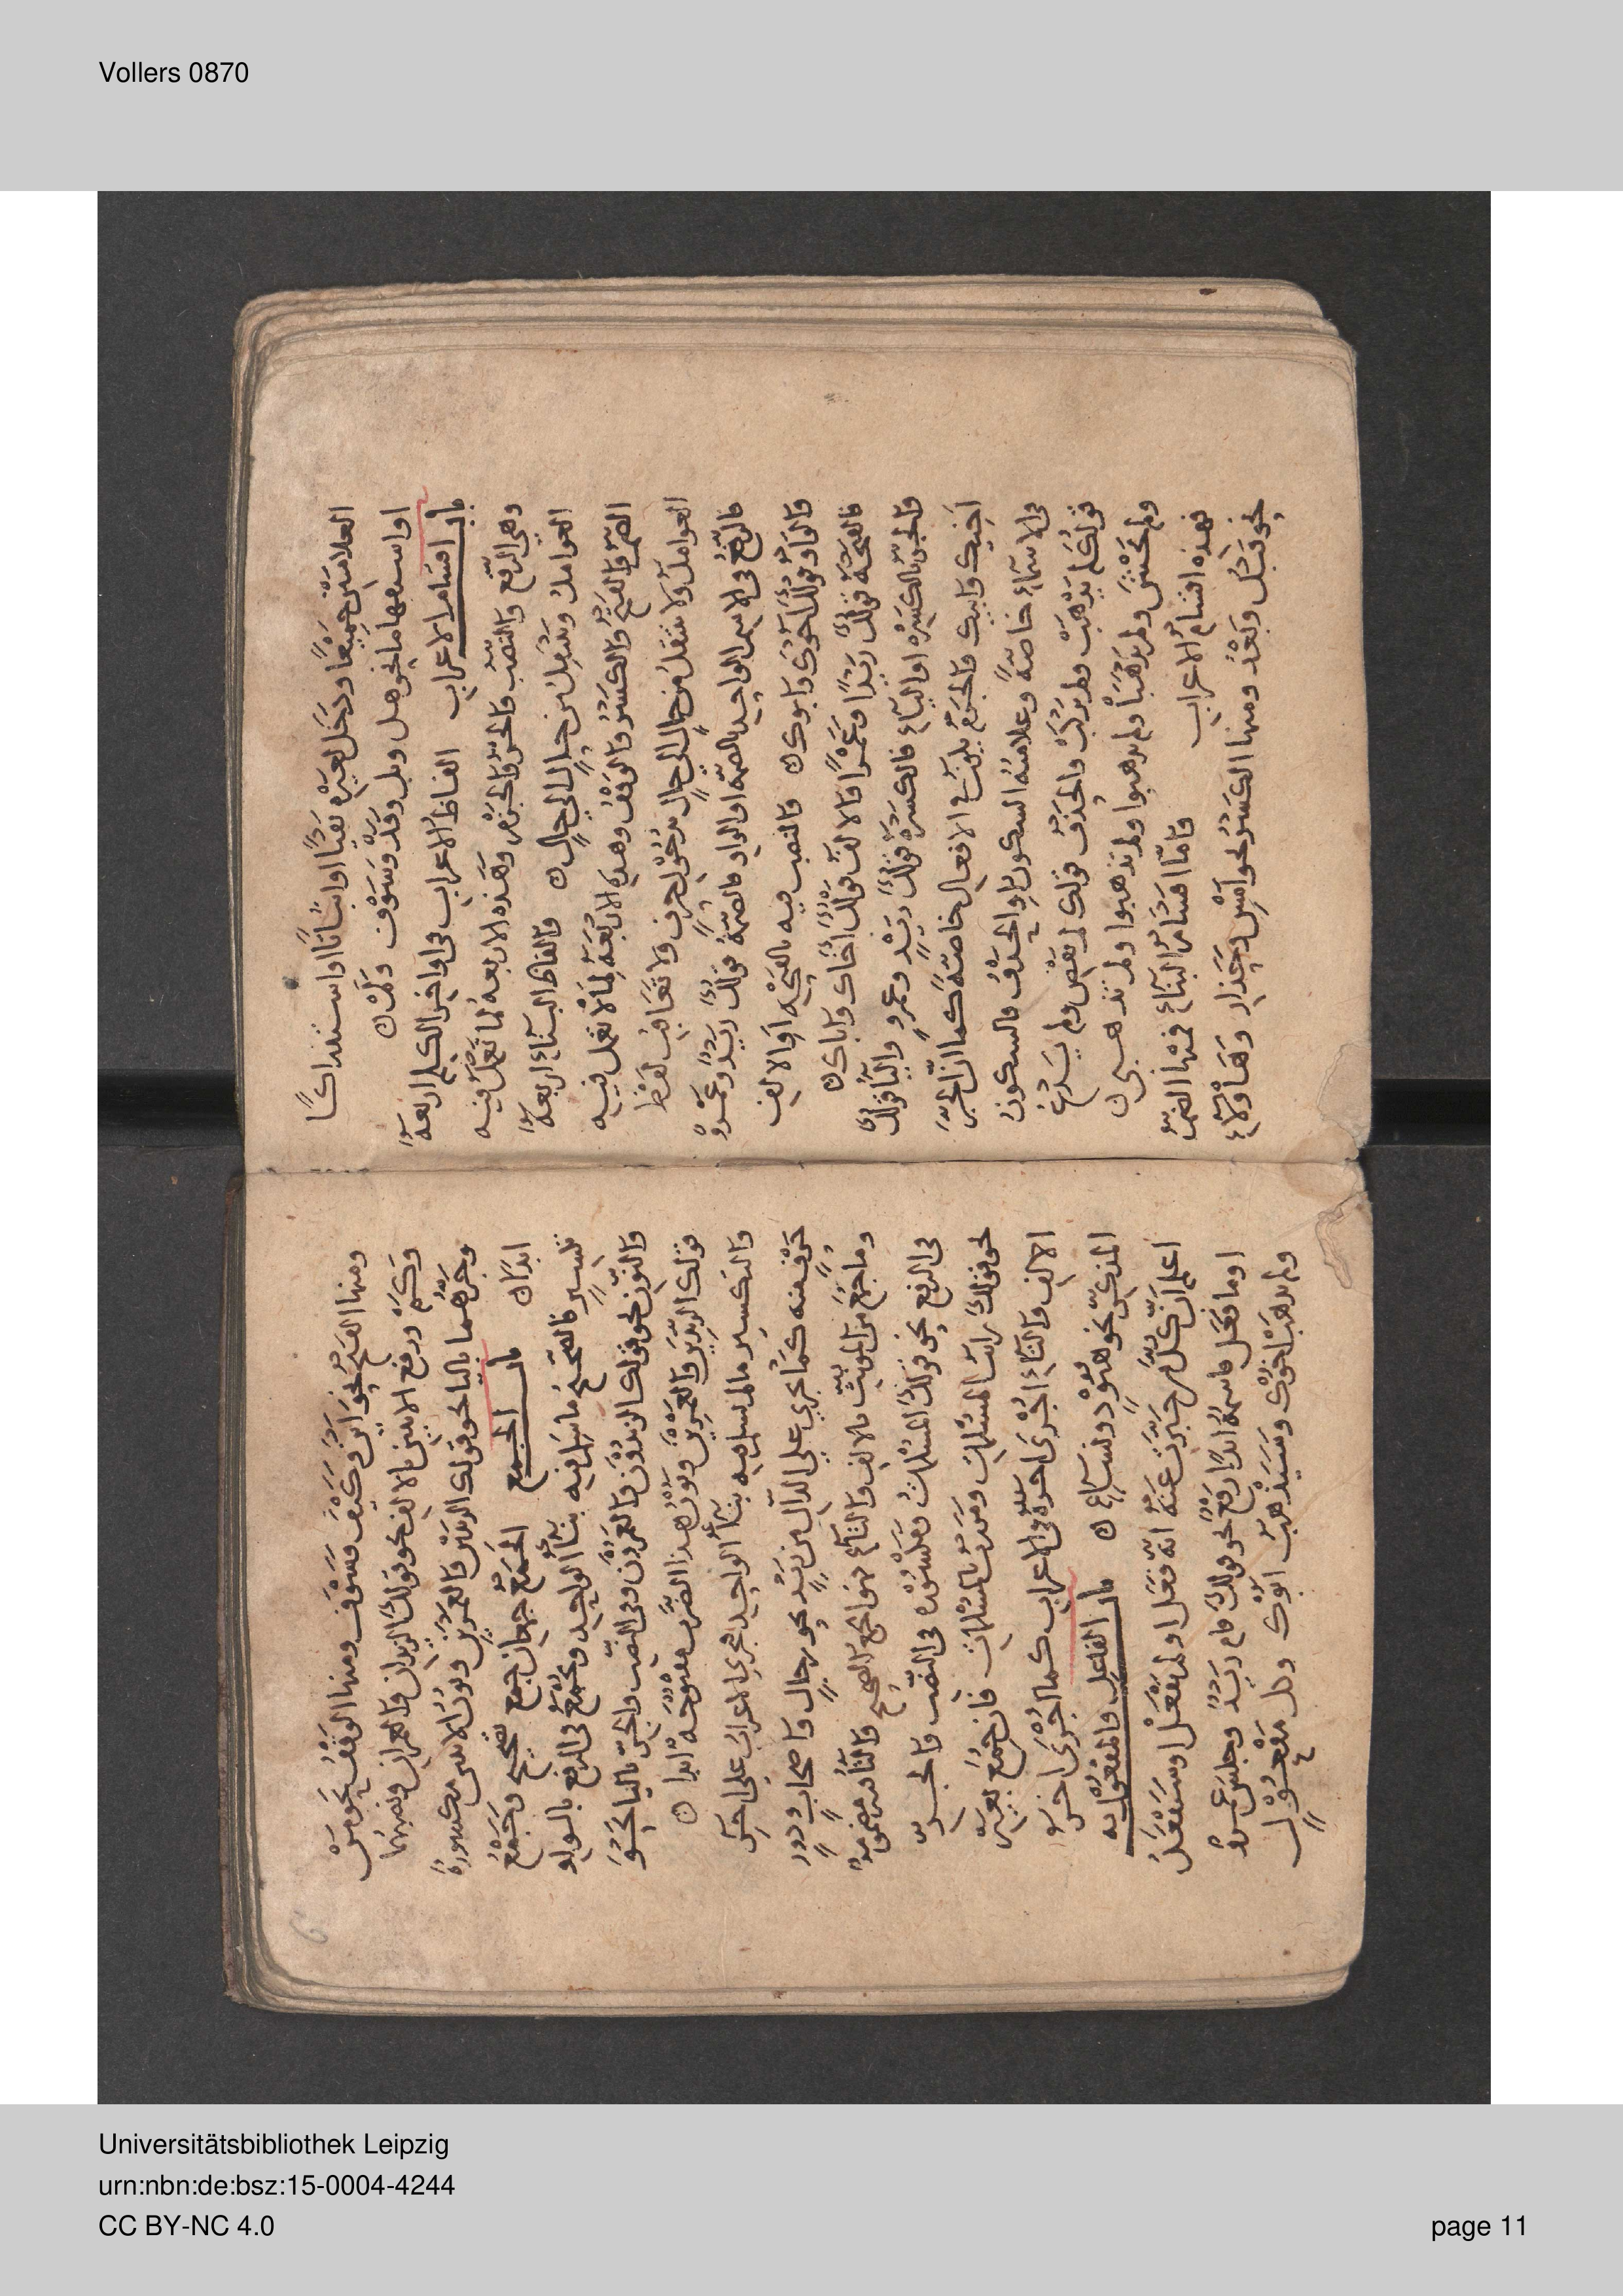 Vollers 0870
العلامتين جميعًا ودخل لغيره نفيًا او اثباتًا او استدراكًا
او استفهاما نحو هل وبل وقد وسوف ولم ن
باب اقسام الاعراب الفاظ الاعراب في اواخر الكلم اربعة
وهي الرفع والنصب والجر والجزم وهذه الاربعة لما تعمل فيه
العوامل وينتقل من حال الى حال ن والفاظ البناء اربعة
الضم والفتح والكسر والوقف وهذه الاربعة لما لا تعمل فيه
العوامل ولا ينتقل من حال الى حال بدخول حرف ولا تعاقب لفظ
فالرفع في الاسم الواحد بالضمة او الواو فالضمة قولك زيدٌ وعمروٌ
والواو قولك اخوك وابوك ن والنصب فيه بالفتحة او الالف
فالفتحة قولك زيدًا وعمرًا والالف قولك اخاك واباك ن
والجر بالكسرة او الياء فالكسرة قولك زيدٍ وعمرٍو والياء قولك
اخيك وابيك والجزم يكون في الافعال خاصة كما ان الجر
في الاسماء خاصة وعلامته السكون او الحذف فالسكون
قولك لم يذهب ولم يركب والحذف قولك لم يقض ولم يدع
ولم يخش ولم يذهبا ولم يذهبوا ولم تذهبوا ولم تذهبي ن
فهذه اقسام الاعراب واما اقسام البناء فمنها الضم
نحو قبل وبعد ومنها الكسر نحو امس وحذار وهاولاء
ومنها الفتح نحو اين وكيف وسوف ومنها الوقف نحو من
وكم ورفع الاثنين بالالف نحو قولك الزيدان والعمران ونصبهما
وجرهما باليا نحو قولك الزيدين والعمرين ونون الاثنين مكسورة
ابدا ن باب الجمع الجمع جمعان جمع تصحيح وجمع
تكسير فالصحيح ما سلم فيه بناء الواحد ويجمع في الرفع بالواو
والنون نحو قولك الزيدون والعمرون وفي النصب والجر باليا نحو
قولك الزيدين والعمرين ونون هذا الضرب مفتوحة ابدا ن
والتكسير ما لم يسلم فيه بناء الواحد ويجري الاعراب على اخر
حرف منه كما يجري على الدال من زيد نحو رجال واصحاب ودور
وما جمع من المونث بالالف والتاء فهو جمع الصحيح والتاء مضمومة
في الرفع نحو قولك المسلمات ومكسورة في النصب والجر
نحو قولك رايت المسلمات ومررت بالمسلمات فان جمع بغير
الالف والتاء اجرى اخره في الاعراب كما اجرى اخر
المذكر نحو هنود ونساء ن باب الفاعل والمفعول به
اعلم ان كل من خبرت عنه انه فعل او لم يفعل او سيفعل
او ما فعل فاسمه ابدا رفع نحو قولك قام زيد وجلس عمرو
ولم يذهب اخوك وسيذهب ابوك وكل مفعول
Universitätsbibliothek Leipzig
urn:nbn:de:bsz:15-0004-4244
CC BY-NC 4.0
page 11